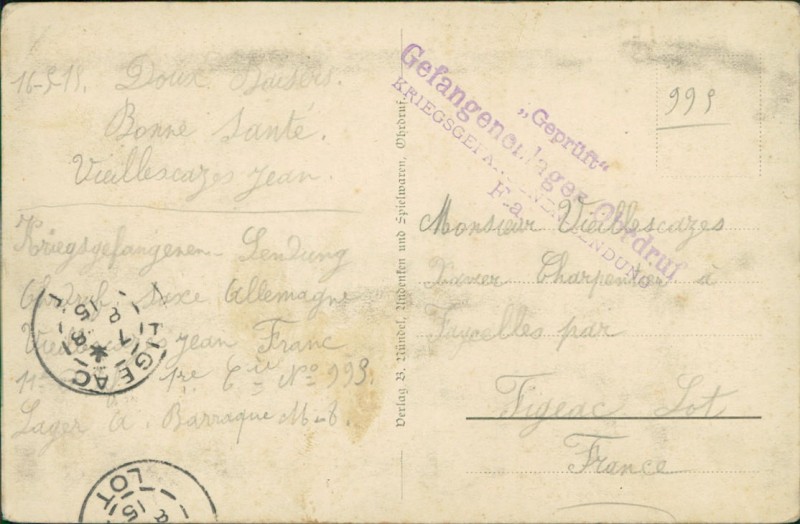 16-5-15. Doux Baisers.
Bonne Santé.
Vieillescazes Jean.
Kriegsgefangenen-Sendung
Ohrdruf. Saxe Allemagne
Vieillescazes Jean Franc
11e 1re Cie No 999.
Lager A. Barraque M-8.
FIGEAC
LOT
Verlag B. Nündel, Andenken und Spielwaren, Ohrdruf.
„Geprüft“
Gefangenenlager Ohrdruf
KRIEGSGEFANGENENSENDUNG
F.a.
999
Monsieur Vieillescazes
Charpentier à
Faycelles par
Figeac Lot
France